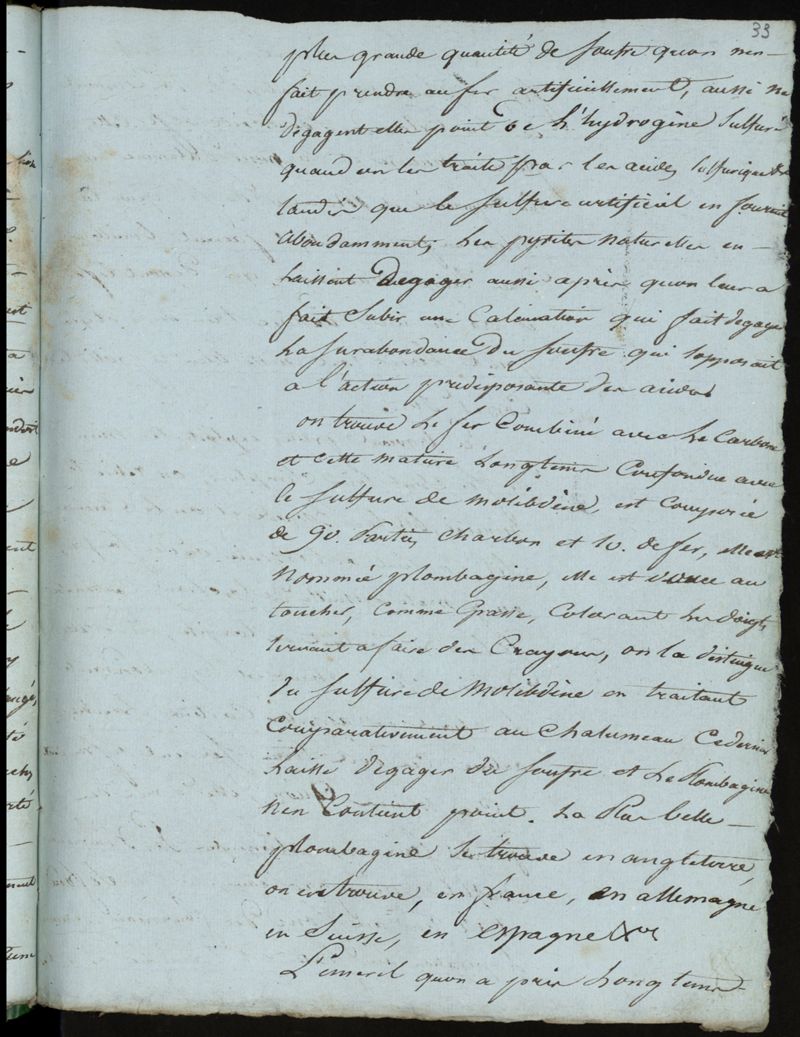 33
plus grande quantité de soufre quon nen
fait prendre au fer artificiellement, aussi ne
degagent elles point de l'hydrogène sulfuré
quand on les traite par les acides sulfurique &c
tandis que le sulfure artificiel en fournit
abondamment, les pyrites naturelles en
laissent degager aussi après quon leur a
fait subir une Calcination qui fait degager
la surabondance du soufre qui sopposait
a l'action predisposante des acides
on trouve le fer Combiné avec le Carbone
et cette matiere longtems Confondue avec
le sulfure de molibdène, est Composée
de 90. parties charbon et 10. de fer, elle est
nommée plombagine, elle est douce au
toucher, comme grasse, colorant les doigts
servant a faire des Crayons, on la distingue
du sulfure de molibdène en traitant
Comparativement au chalumeau Ce dernier
laisse degager du soufre et la plombagine
nen Contient point. La plus belle
plombagine se trouve en angleterre,
on en trouve, en france, en allemagne
en Suisse, en espagne &c
L'emeril quon a pris longtems